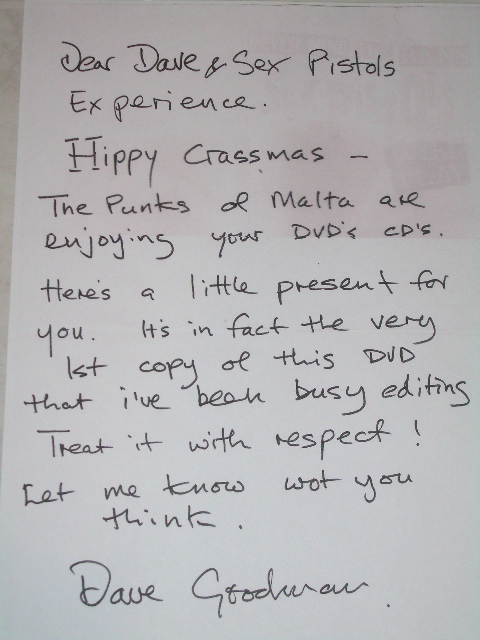 Dear Dave & Sex Pistols
Experience.
Hippy Crassmas –
The Punks of Malta are
enjoying your DVD's CD's.
Here's a little present for
you. It's in fact the very
1st copy of this DVD
that i've been busy editing
Treat it with respect!
Let me know wot you
think.
Dave Goodman.